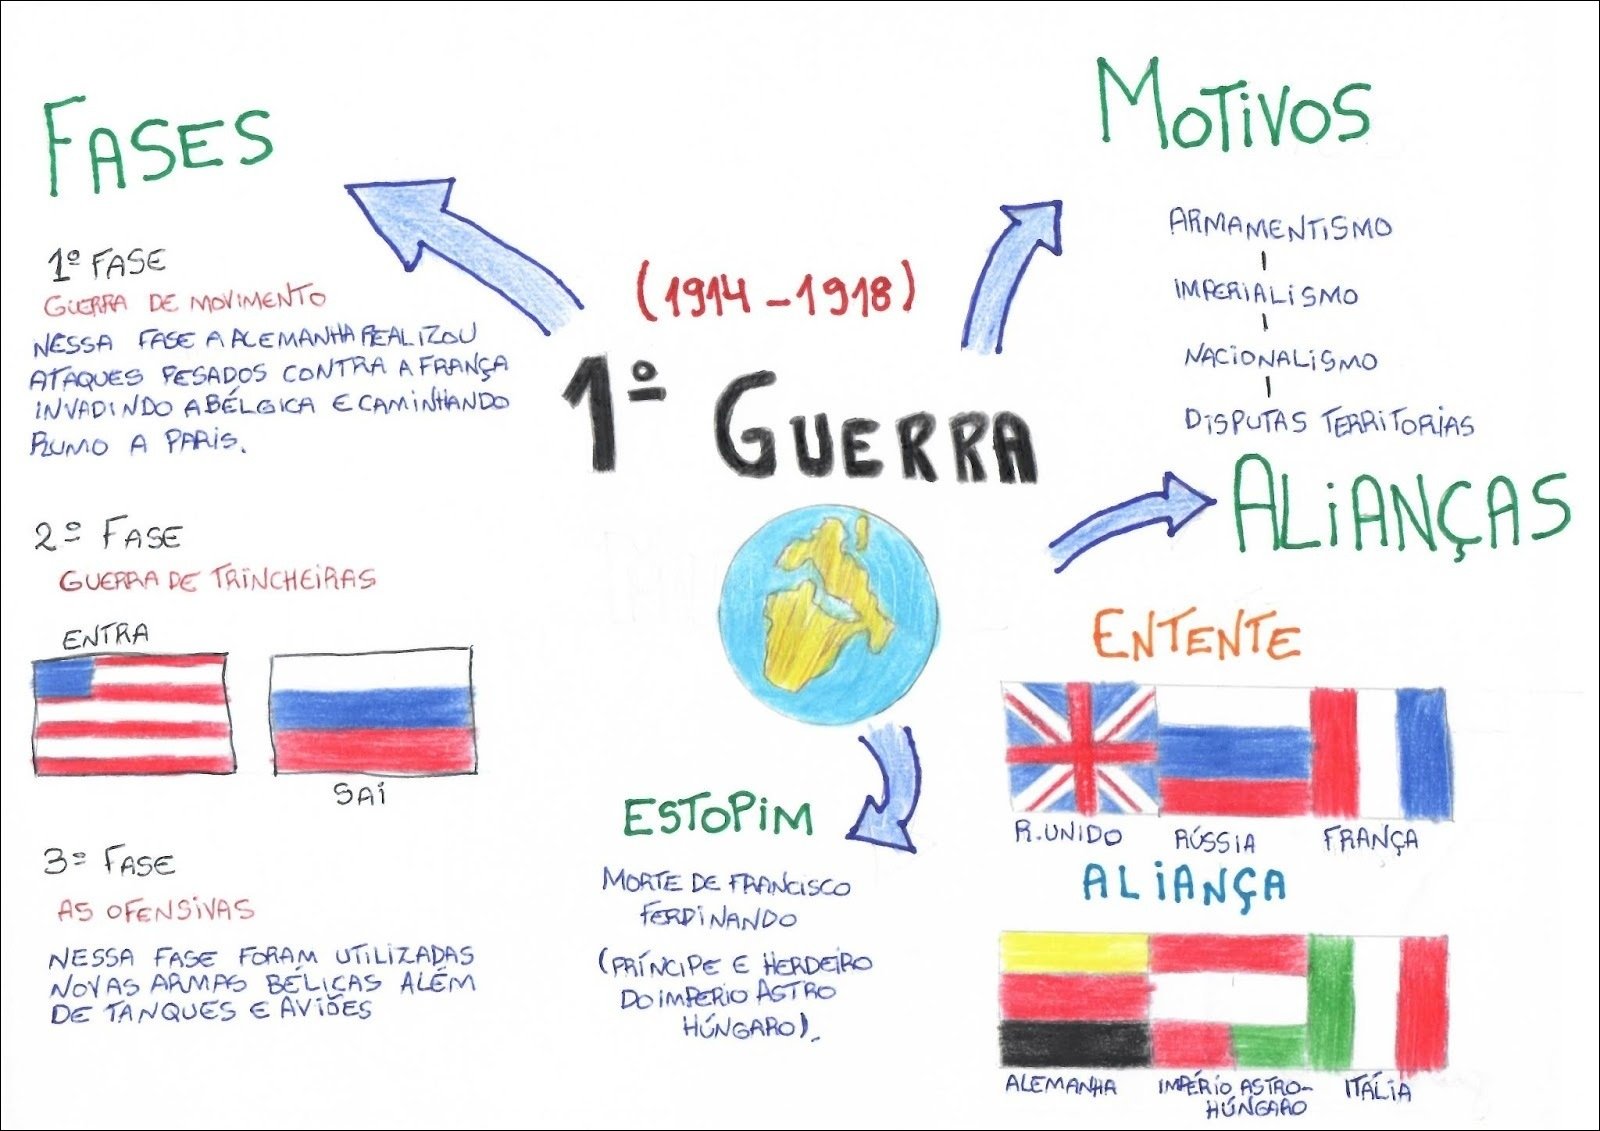 FASES
1º FASE
GUERRA DE MOVIMENTO
NESSA FASE A ALEMANHA REALIZOU
ATAQUES PESADOS CONTRA A FRANÇA
INVADINDO A BÉLGICA E CAMINHANDO
RUMO A PARIS.
2º FASE
GUERRA DE TRINCHEIRAS
ENTRA
SAI
3º FASE
AS OFENSIVAS
NESSA FASE FORAM UTILIZADAS
NOVAS ARMAS BÉLICAS ALÉM
DE TANQUES E AVIÕES
(1914-1918)
1º GUERRA
ESTOPIM
MORTE DE FRANCISCO
FERDINANDO
(PRÍNCIPE E HERDEIRO
DO IMPERIO ASTRO
HÚNGARO).
MOTIVOS
ARMAMENTISMO
IMPERIALISMO
NACIONALISMO
DISPUTAS TERRITORIAS
ALIANÇAS
ENTENTE
R.UNIDO RÚSSIA FRANÇA
ALIANÇA
ALEMANHA IMPÉRIO ASTRO- ITÁLIA
HÚNGARO